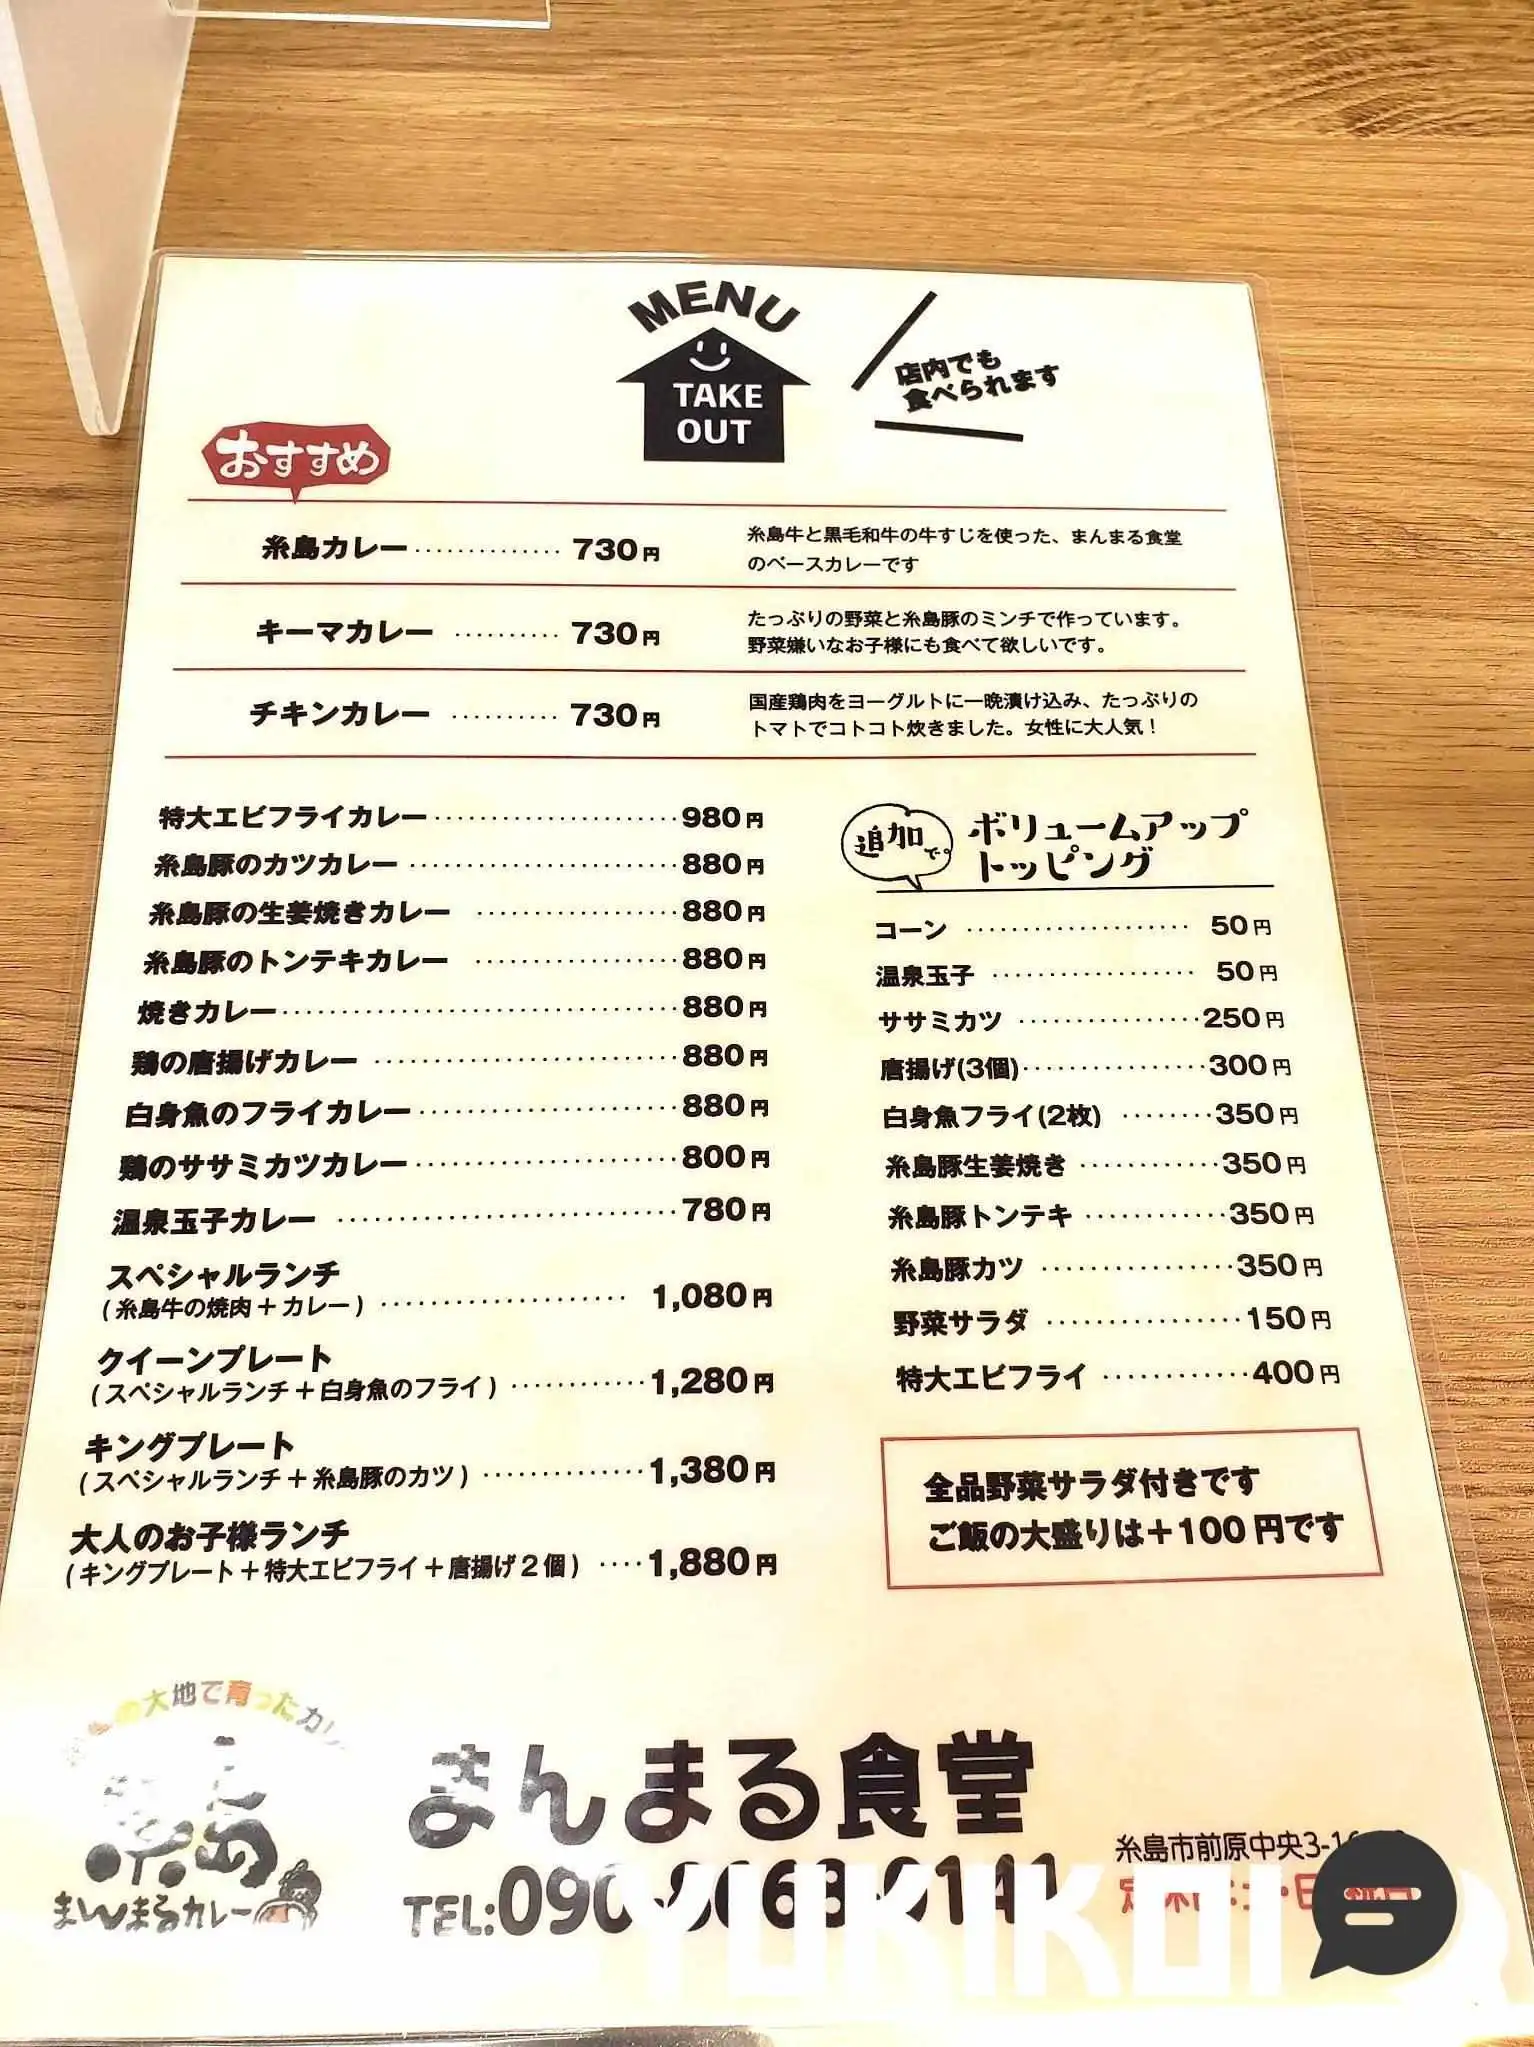 MENU
TAKE
OUT
店内でも
食べられます
おすすめ
糸島カレー 730円
糸島牛と黒毛和牛の牛すじを使った、まんまる食堂
のベースカレーです
キーマカレー 730円
たっぷりの野菜と糸島豚のミンチで作っています。
野菜嫌いなお子様にも食べて欲しいです。
チキンカレー 730円
国産鶏肉をヨーグルトに一晩漬け込み、たっぷりの
トマトでコトコト炊きました。女性に大人気！
特大エビフライカレー 980円
糸島豚のカツカレー 880円
糸島豚の生姜焼きカレー 880円
糸島豚のトンテキカレー 880円
焼きカレー 880円
鶏の唐揚げカレー 880円
白身魚のフライカレー 880円
鶏のササミカツカレー 800円
温泉玉子カレー 780円
スペシャルランチ
(糸島牛の焼肉+カレー) 1,080円
クイーンプレート
(スペシャルランチ+白身魚のフライ) 1,280円
キングプレート
(スペシャルランチ+糸島豚のカツ) 1,380円
大人のお子様ランチ
(キングプレート+特大エビフライ+唐揚げ2個) 1,880円
追加で。
ボリュームアップ
トッピング
コーン 50円
温泉玉子 50円
ササミカツ 250円
唐揚げ(3個) 300円
白身魚フライ(2枚) 350円
糸島豚生姜焼き 350円
糸島豚トンテキ 350円
糸島豚カツ 350円
野菜サラダ 150円
特大エビフライ 400円
全品野菜サラダ付きです
ご飯の大盛りは+100円です
大地で育ったカレ
まんまるカレー
まんまる食堂
TEL:090-8663-9141
糸島市前原中央3-
YUKIKOI